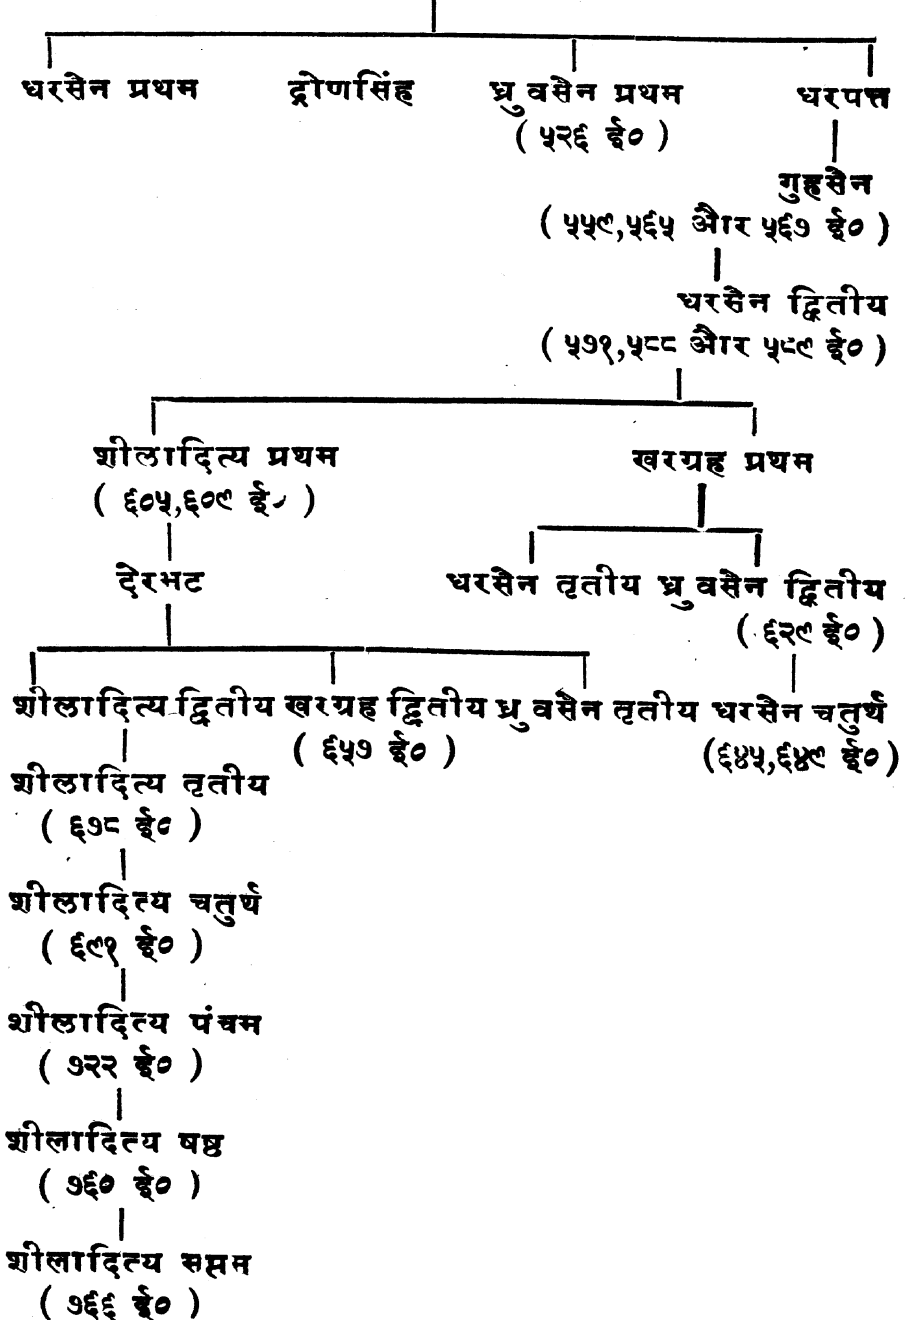 धरसेन प्रथम द्रोणसिंह ध्रुवसेन प्रथम धरपत्त
( ५२६ ई० )
गुहसेन
( ५५९,५६५ और ५६७ ई० )
धरसेन द्वितीय
( ५७१,५८८ और ५८९ ई० )
शीलादित्य प्रथम खरग्रह प्रथम
( ६०५,६०९ ई० )
देरभट धरसेन तृतीय ध्रुवसेन द्वितीय
( ६२९ ई० )
शीलादित्य द्वितीय खरग्रह द्वितीय ध्रुवसेन तृतीय धरसेन चतुर्थ
( ६५७ ई० ) (६४५,६४९ ई०)
शीलादित्य तृतीय
( ६७८ ई० )
शीलादित्य चतुर्थ
( ६९१ ई० )
शीलादित्य पंचम
( ७२२ ई० )
शीलादित्य षष्ठ
( ७६० ई० )
शीलादित्य सप्तम
( ७६६ ई० )